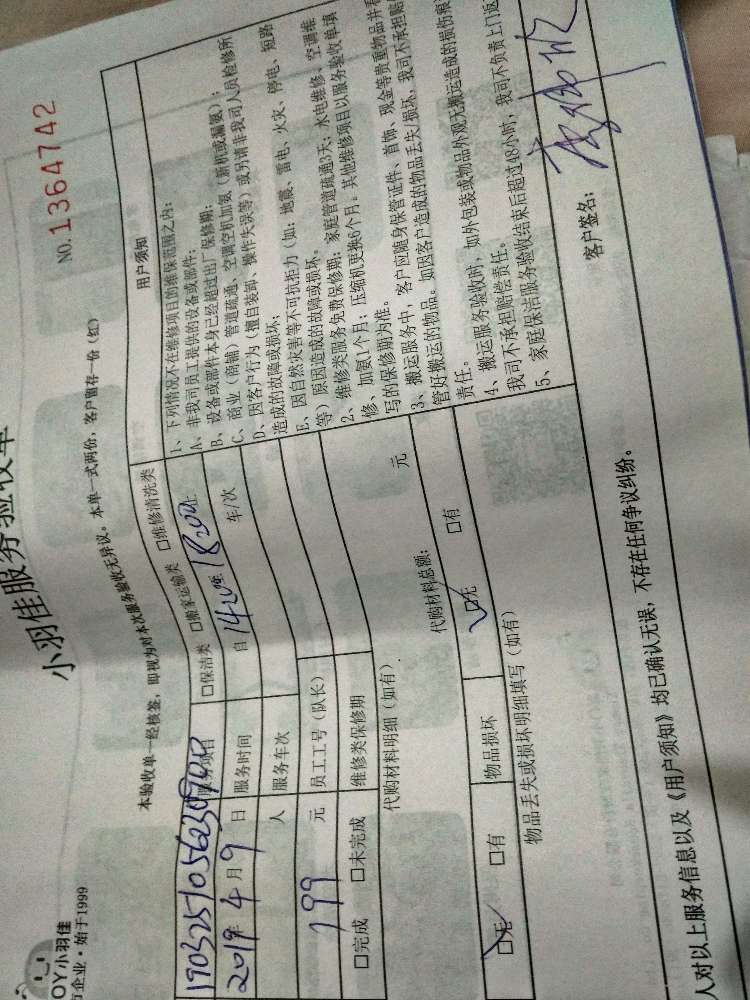 OY小羽佳
企业·始于1999
小羽佳服务验收单
NO.1364742
本验收单一经核签，即视为对本次服务验收无异议。本单一式两份，客户留存一份（红）
服务项目 □保洁类 □搬家运输类 □维修清洗类
2019年4月9日 服务时间 自14:00至18:00止
人 服务车次 车/次
199元 员工工号（队长）
□完成 □未完成 维修类保修期
代购材料明细（如有）
代购材料总额： 元
□无 □有 物品损坏 □无 □有
物品丢失或损坏明细填写（如有）
用户须知
1、下列情况不在维修项目的维保范围之内：
A、非我司员工提供的设备或部件；
B、设备或部件本身已经超过出厂保修期；
C、商业（商铺）管道疏通、空调空机加氨（新机或漏氨）；
D、因客户行为（擅自装卸、操作失误等）或另请非我司人员检修所
造成的故障或损坏；
E、因自然灾害等不可抗拒力（如：地震、雷电、火灾、停电、短路
等）原因造成的故障或损坏。
2、维修类服务免费保修期：家庭管道疏通3天；水电维修、空调维
修、加氨1个月；压缩机更换6个月。其他维修项目以服务验收单填
写的保修期为准。
3、搬运服务中，客户应随身保管证件、首饰、现金等贵重物品并看
管好搬运的物品。如因客户造成的物品丢失损坏，我司不承担赔
责任。
4、搬运服务验收时，如外包装或物品外观无搬运造成的损伤痕
我司不承担赔偿责任。
5、家庭保洁服务验收结束后超过48小时，我司不负责上门返
客户签名：
人对以上服务信息以及《用户须知》均已确认无误，不存在任何争议纠纷。